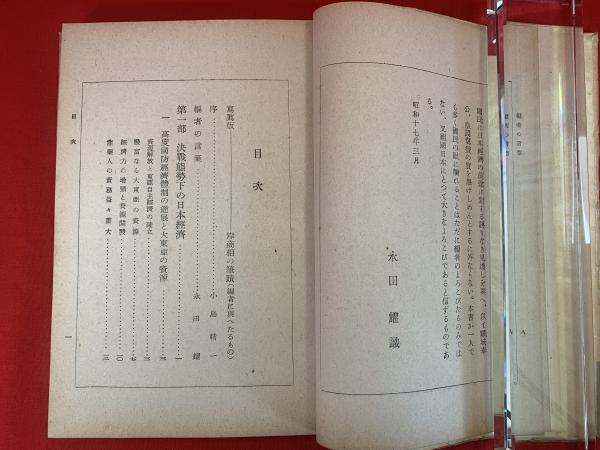 國民に日本經濟の前途に對する謬りなき見透しを與へ、以て職域奉
公、皇謨翼贊の實を擧げしめんとするに外ならない。本書が一人で
も多く國民の眼に觸れることはただに編者のよろこびたるのみでは
ない、又祖國日本にとつて大きなよろこびであると信ずるものであ
る。
昭和十七年三月
永田耀識
編者の言葉
八
目次
寫眞版 岸商相の筆蹟(編者に與へたるもの)
序 小島精一
編者の言葉 永田耀
第一部 決戰態勢下の日本經濟 一
一 高度國防經濟體制の進展と大東亞の資源 三
資源解放と東亞自主經濟の確立 三
豐富なる大東亞の資源 七
經濟力の增强と資源開發 一〇
產業人の責務益々重大 三
目次
一